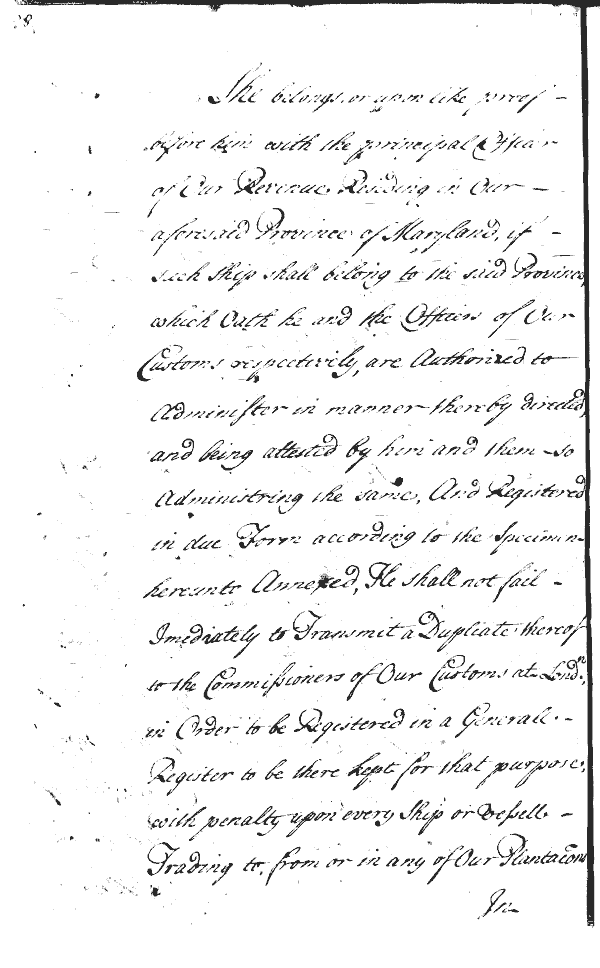 28
She belongs, or upon like proof –
before him with the principal Officer
of Our Revenue Residing in Our –
aforesaid Province of Maryland, if –
such Ship shall belong to the said Province,
which Oath he and the Officers of Our
Customs respectively, are Authorized to
Administer in manner thereby directed,
and being attested by him and them so
Administring the same, And Registered
in due Form according to the Specimen
hereunto Annexed, He shall not fail –
Imediately to Transmit a Duplicate thereof
to the Commissioners of Our Customs at Londn,
in Order to be Registered in a Generall –
Register to be there kept for that purpose,
with penalty upon every Ship or Vessell –
Trading to, from or in any of Our Plantacons
In